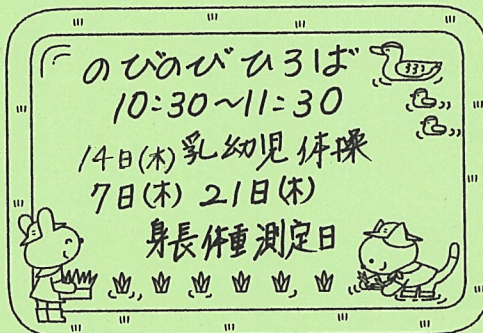 のびのびひろば
10:30~11:30
14日(木)乳幼児体操
7日(木) 21日(木)
身長体重測定日